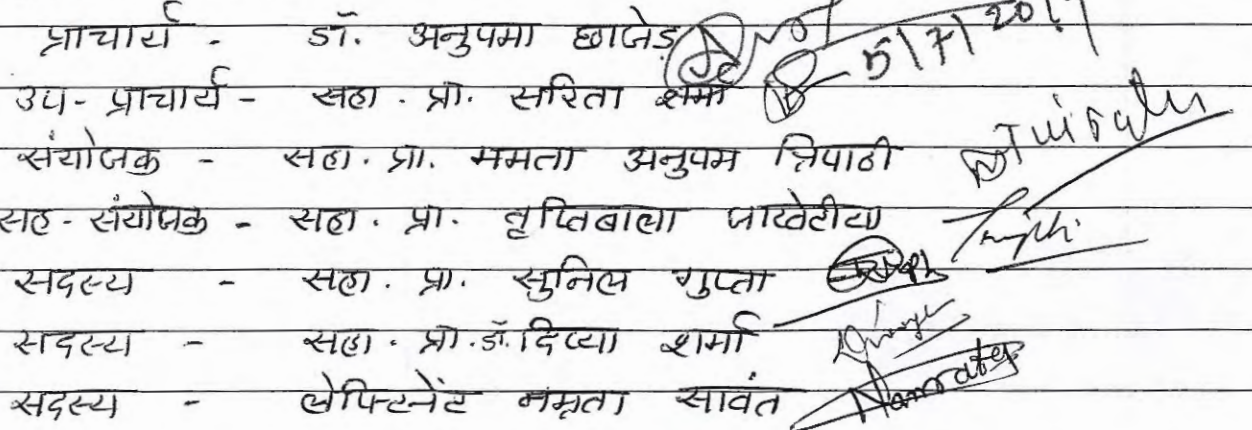 प्राचार्य - डॉ. अनुपमा छाजेड़
उप - प्राचार्य - सहा. प्रा. सरिता शर्मा 5/7/20
संयोजक - सहा. प्रा. ममता अनुपम त्रिपाठी
सह - संयोजक - सहा. प्रा. तृप्तिबाला जाखेटीया
सदस्य - सहा. प्रा. सुनिल गुप्ता
सदस्य - सहा. प्रा. डॉ. दिव्या शर्मा
सदस्य - लेफ्टिनेंट नम्रता सावंत Namrata